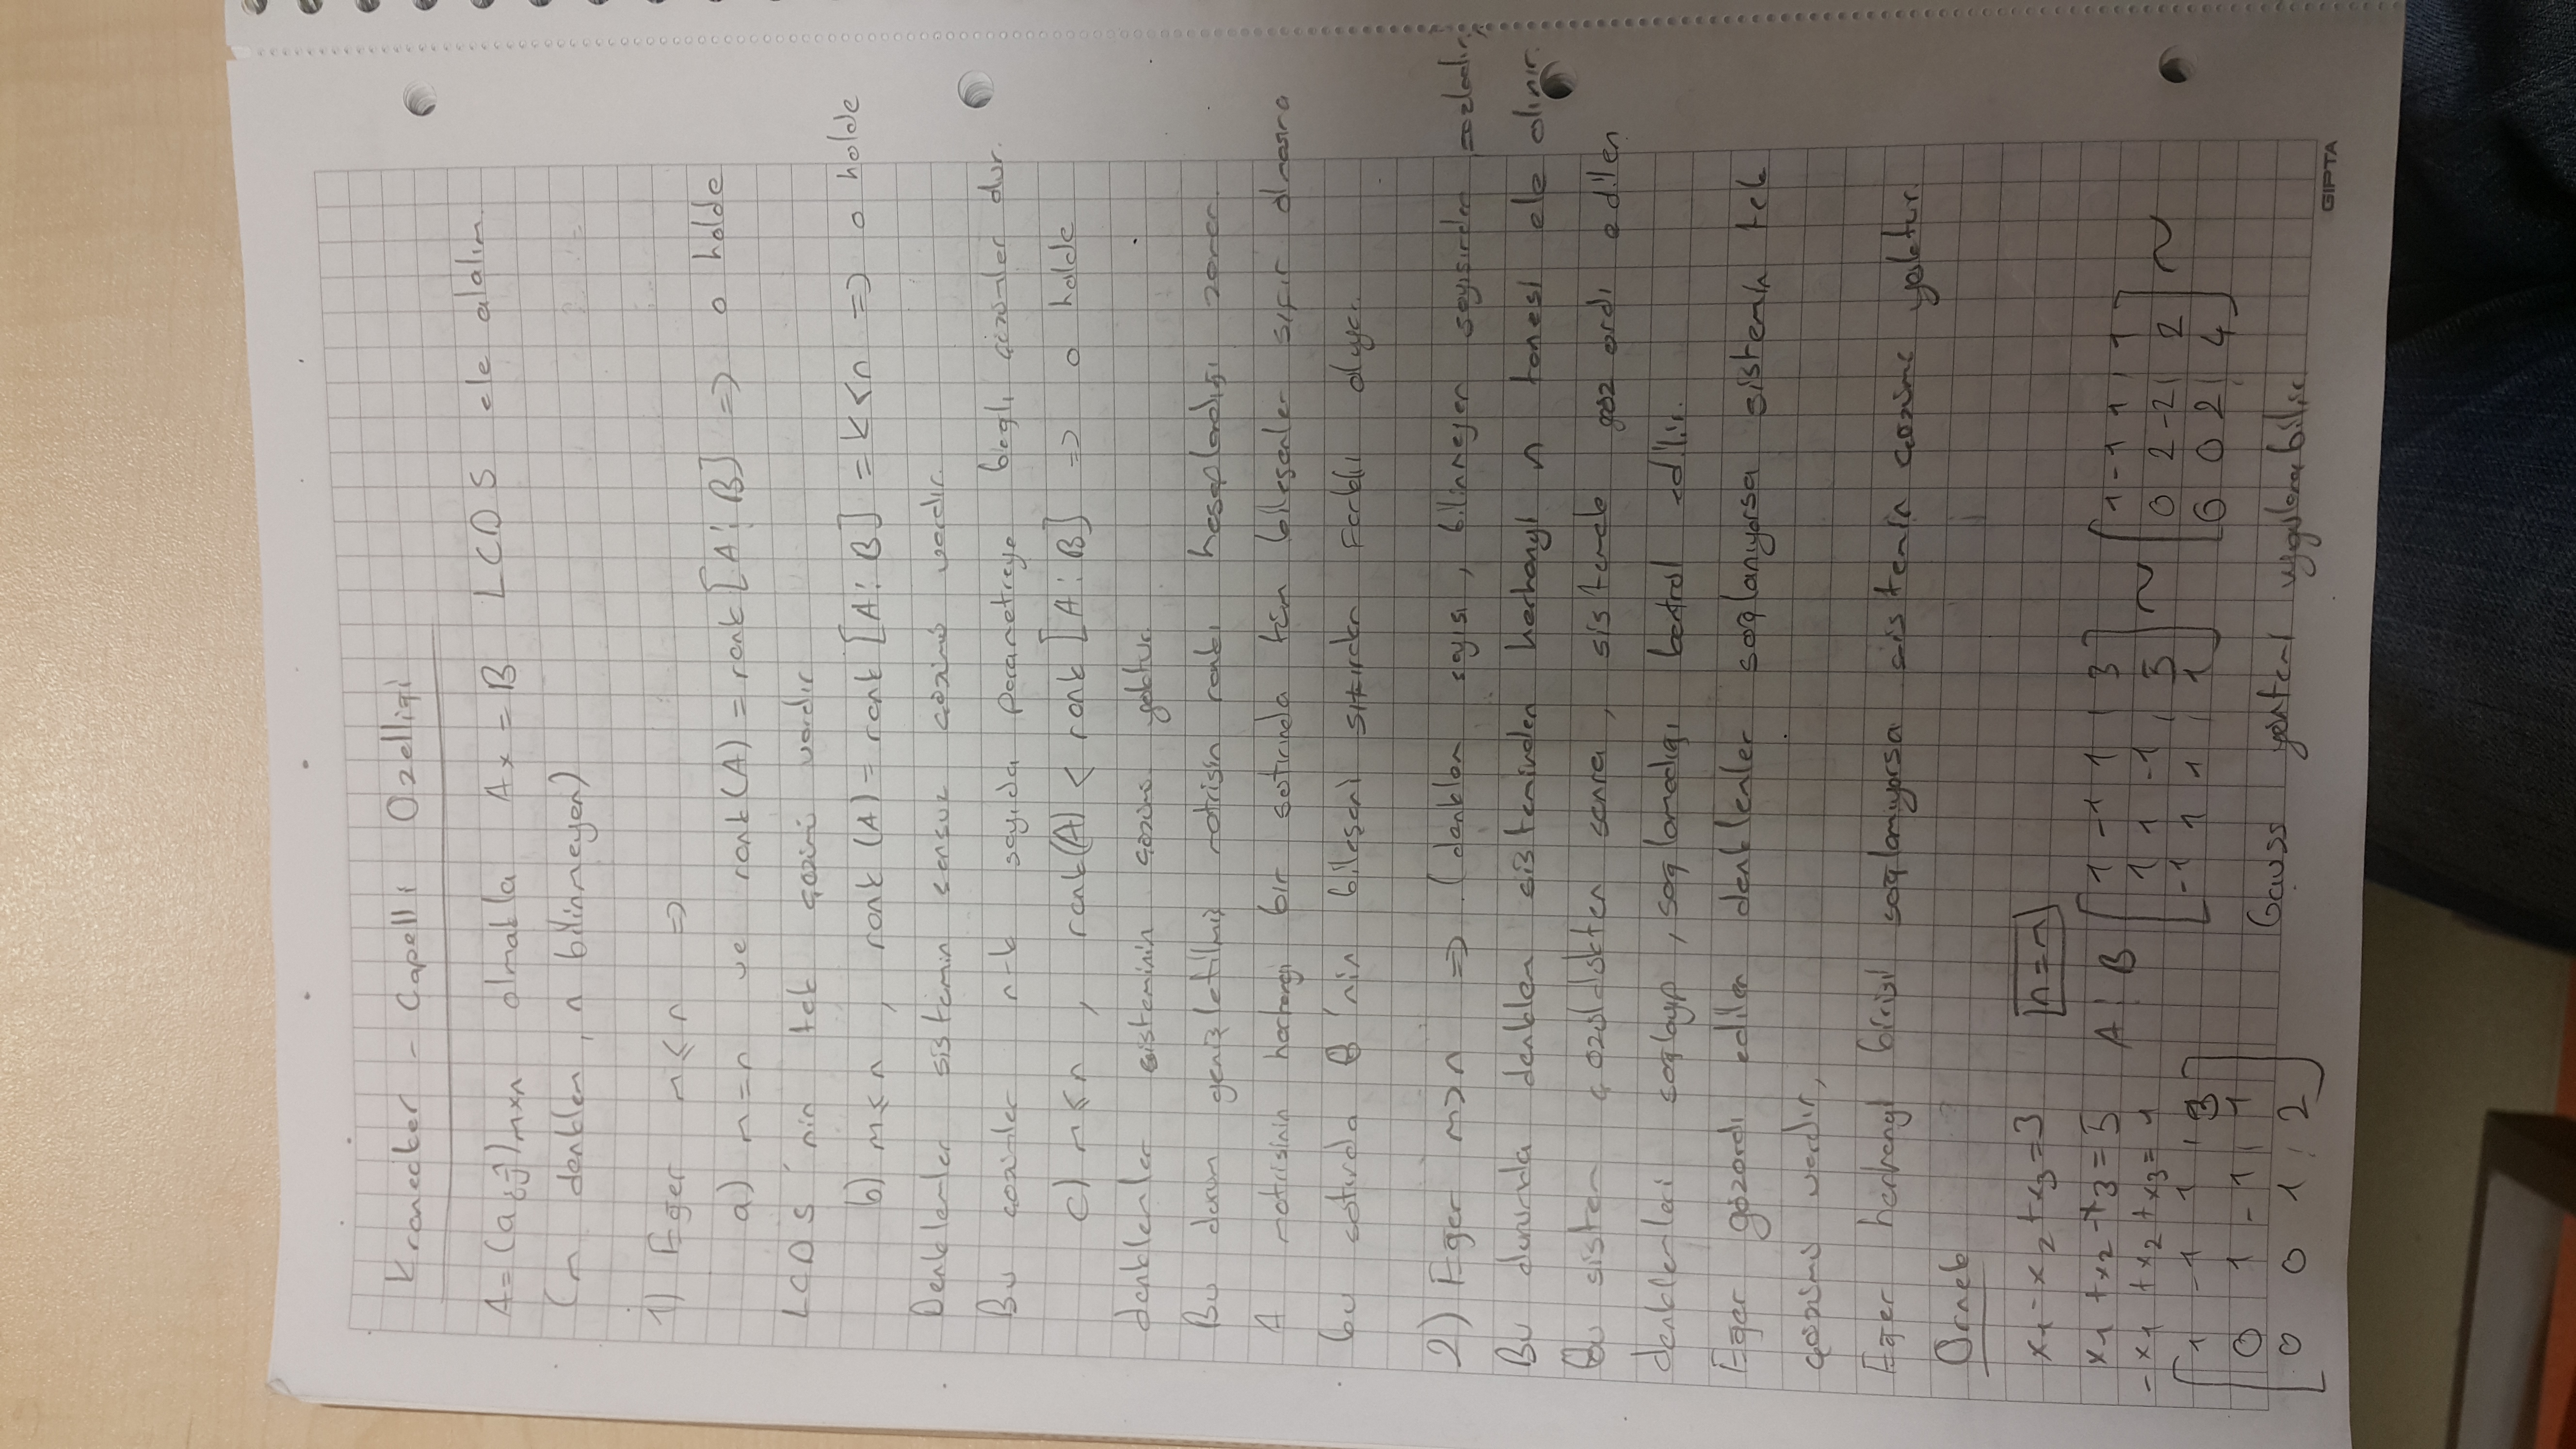 Kronecker - Capelli Ozelligi
A = (aij)mxn olmakla Ax = B LCDS ele alalım.
(m denklem, n bilinmeyen)
1) Eger m ≤ n ⇒
a) m = n ve rank(A) = rank [A ⋮ B] ⇒ o halde
LCDS 'nin tek çözümü vardır
b) m ≤ n , rank (A) = rank [A ⋮ B] = k < n ⇒ o halde
Denklemler sistemin sonsuz çözümü vardır.
Bu çözümler n-k sayıda parametreye baglı çözümler dur.
c) m ≤ n , rank(A) < rank [A ⋮ B] ⇒ o halde
denklemler sisteminin çözümü yoktur.
Bu durum genişletilmiş matrisin rankı hesaplandığı zaman
A matrisinin herhangi bir satırında tüm bileşenler sıfır olmasına
bu satırda B 'nin bileşeni sıfırdan farklı oluyor.
2) Eger m > n ⇒ (denklem sayısı, bilinmeyen sayısından fazladır)
Bu durumda denklem sisteminden herhangi n tanesi ele alınır.
Bu sistem çözüldükten sonra, sistemde göz ardı edilen
denklemleri saglayıp, saglamadıgı kontrol edilir.
Eger gözardı edilen denklemler saglanıyorsa sistemin tek
çözümü vardır,
Eger herhangi birisi saglamıyorsa sistemin çözümü yoktur.
Ornek
x1 - x2 + x3 = 3 n = m
x1 + x2 - x3 = 5 A ⋮ B [1 -1 1 | 3
- x1 + x2 + x3 = 1 1 1 -1 | 5
-1 1 1 | 1] ~ [1 -1 1 | 1
0 2 -2 | 2
0 0 2 | 4] ~
[1 -1 1 | 3
0 1 -1 | 1
0 0 1 | 2]
Gauss yöntemi uygulanabilir
GIPTA